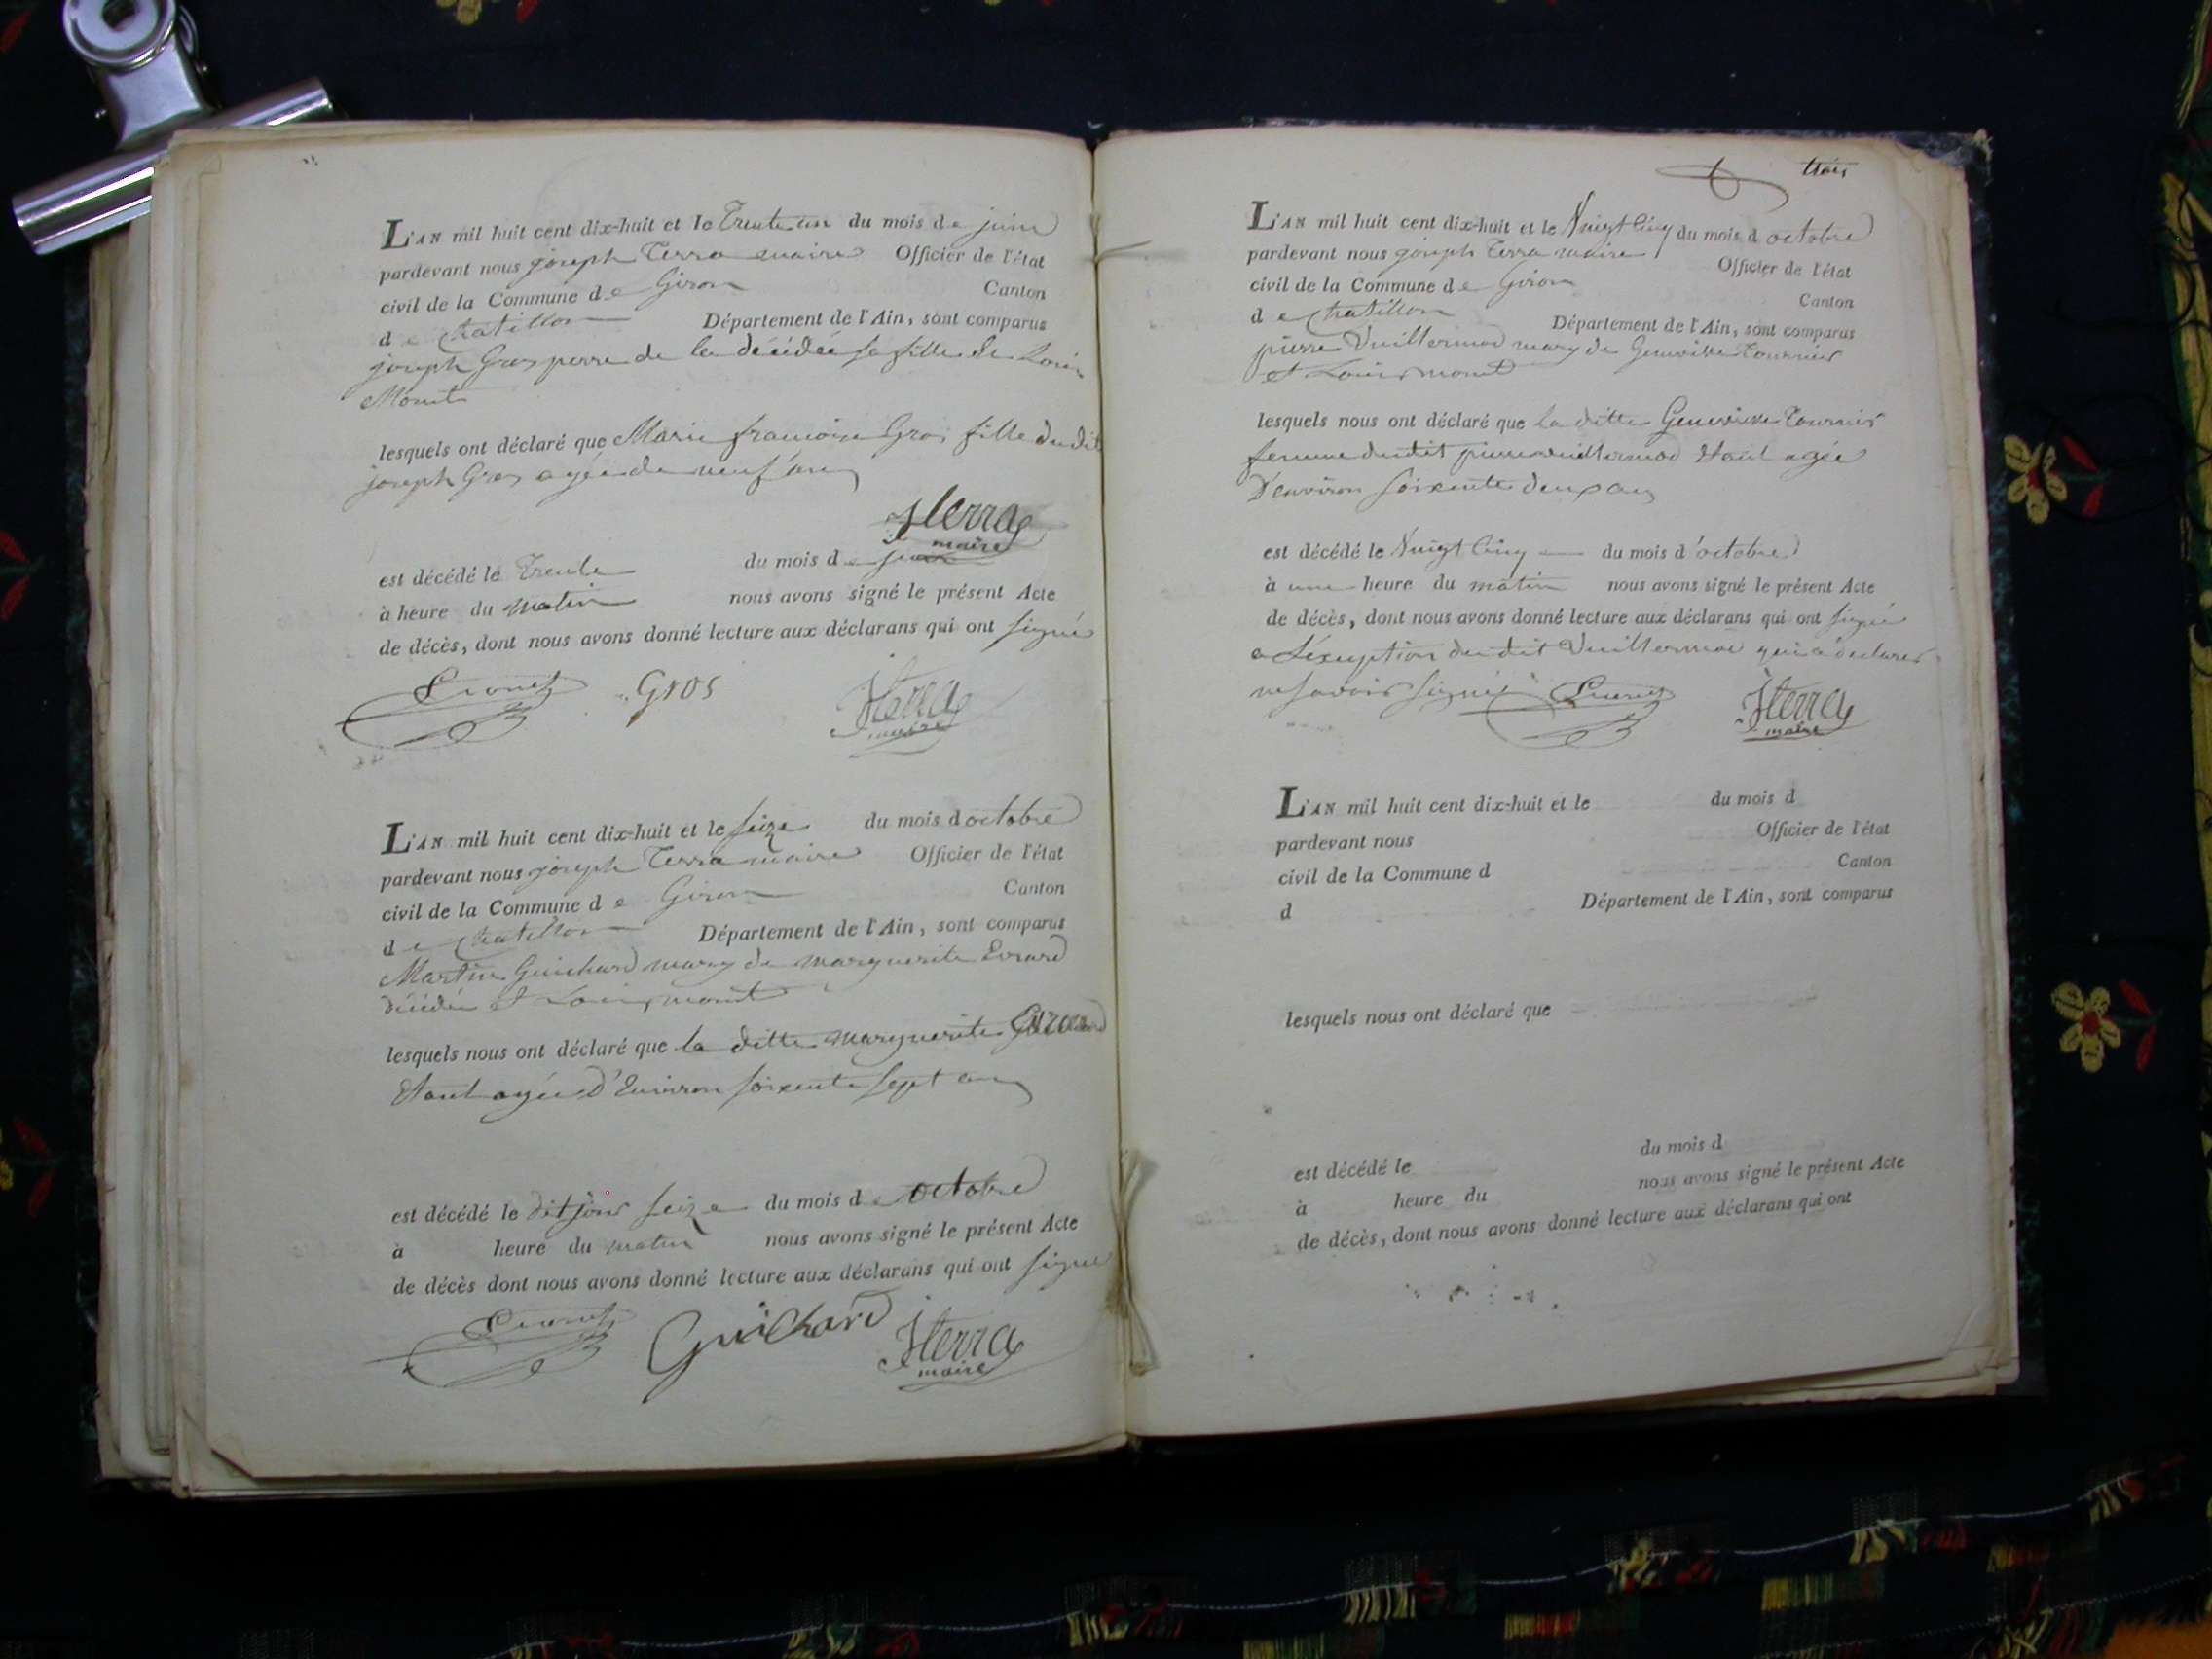 L'AN mil huit cent dix-huit et le Trente un du mois de juin
pardevant nous joseph Terra maire Officier de l'état
civil de la Commune de Giron Canton
de Chatillon Département de l'Ain, sont comparus
joseph Gros perre de la décédée sa fille Louis
Monet
lesquels ont déclaré que Marie francoise Gros fille du dit
joseph Gros agée de neuf ans
JTerra
maire
est décédé le Trente du mois de juin
à heure du matin nous avons signé le présent Acte
de décès, dont nous avons donné lecture aux déclarans qui ont signé
Gros JTerra
maire
L'AN mil huit cent dix-huit et le seize du mois d octobre
pardevant nous joseph Terra maire Officier de l'état
civil de la Commune de Giron Canton
de Chatillon Département de l'Ain, sont comparus
Martin Guichard mary de marguerite Evrard
décédée et Louis monet
lesquels nous ont déclaré que la ditte marguerite
Etant agée d'Environ soixente sept ans
est décédé le dit jour seize du mois de octobre
à heure du matin nous avons signé le présent Acte
de décès dont nous avons donné lecture aux déclarans qui ont signé
Guichard JTerra
maire
trois
L'AN mil huit cent dix-huit et le Vingt Cinq du mois d octobre
pardevant nous joseph Terra maire Officier de l'état
civil de la Commune de Giron Canton
de Chatillon Département de l'Ain, sont comparus
pierre Vuillermoz mary de Genevieve Tournier
et Louis monet
lesquels nous ont déclaré que la ditte Genevieve Tournier
femme dudit pierre vuillermoz Etant agée
D'environ soixente deux ans
est décédé le Vingt Cinq du mois d'octobre
à une heure du matin nous avons signé le présent Acte
de décès, dont nous avons donné lecture aux déclarans qui ont signé
a L'exception du dit Vuillermoz qui a déclaré
ne savoir signé JTerra
maire
L'AN mil huit cent dix-huit et le du mois d
pardevant nous Officier de l'état
civil de la Commune d Canton
d Département de l'Ain, sont comparus
lesquels nous ont déclaré que
est décédé le du mois d
à heure du nous avons signé le présent Acte
de décès, dont nous avons donné lecture aux déclarans qui ont